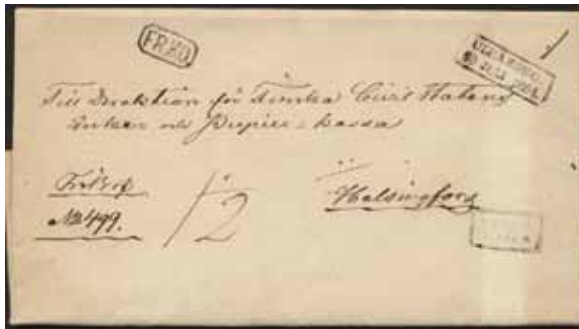 FR:KO
ULEÅBORG
JULI
Till Direktion för Finska Civil Statens
Enke och Pupill-Kassa
Fribref
Helsingfors
№ 499.
1/2